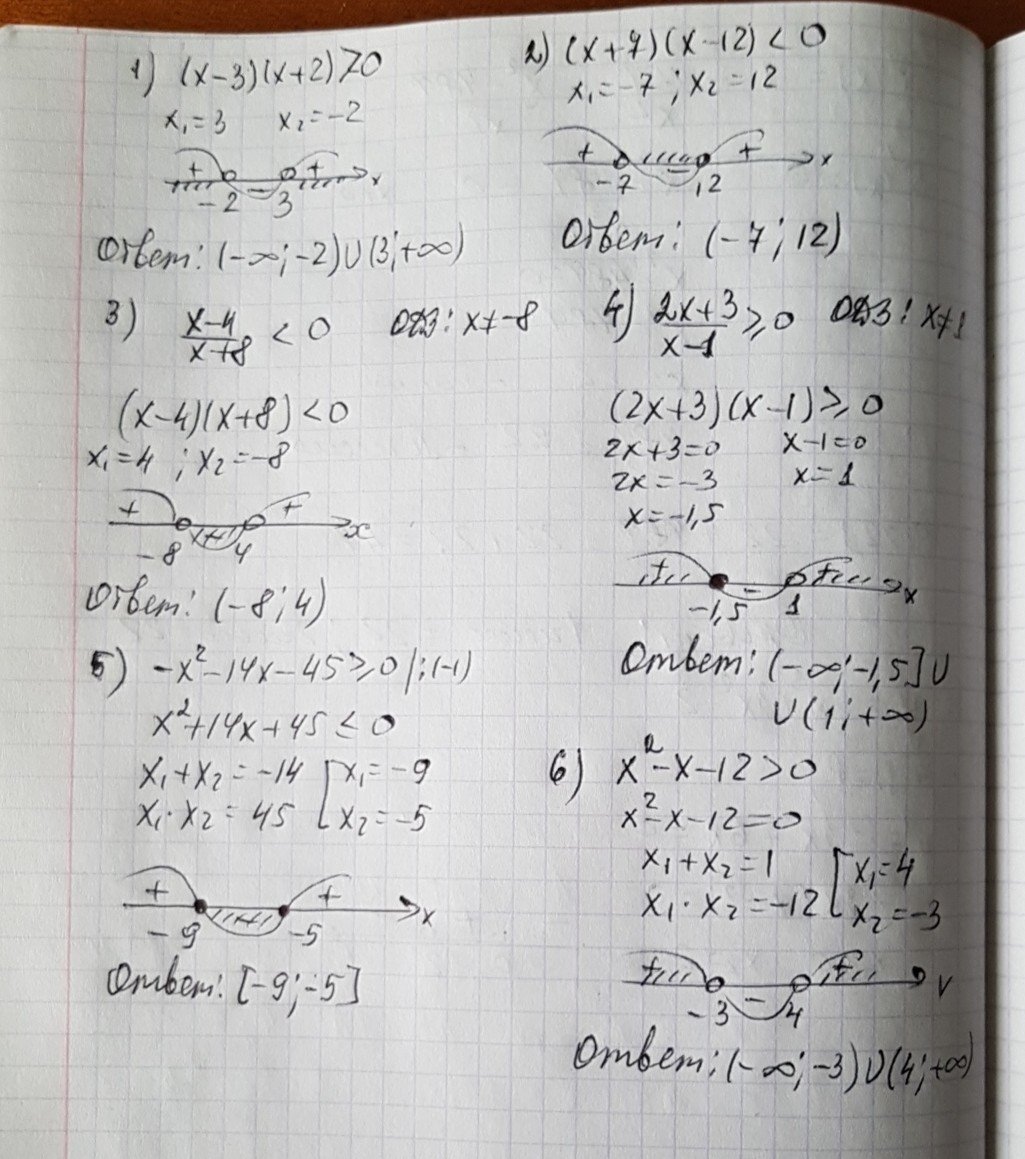 1) (x-3)(x+2)>0
x₁=3 x₂=-2
+ - + x
-2 3
Ответ: (-∞;-2)∪(3;+∞)
2) (x+7)(x-12)<0
x₁=-7 ; x₂=12
+ - + x
-7 12
Ответ: (-7;12)
3) (x-4)/(x+8) < 0 ОДЗ: x≠-8
(x-4)(x+8)<0
x₁=4 ; x₂=-8
+ + x
-8 4
Ответ: (-8;4)
4) (2x+3)/(x-1) ⩾ 0 ОДЗ: x≠1
(2x+3)(x-1)⩾0
2x+3=0 x-1=0
2x=-3 x=1
x=-1,5
+ - + x
-1,5 1
Ответ: (-∞;-1,5]∪
∪(1;+∞)
5) -x²-14x-45⩾0 |:(-1)
x²+14x+45≤0
x₁+x₂=-14 [x₁=-9
x₁·x₂=45 [x₂=-5
+ + x
-9 -5
Ответ: [-9;-5]
6) x²-x-12>0
x²-x-12=0
x₁+x₂=1 [x₁=4
x₁·x₂=-12 [x₂=-3
+ - +
-3 4
Ответ: (-∞;-3)∪(4;+∞)